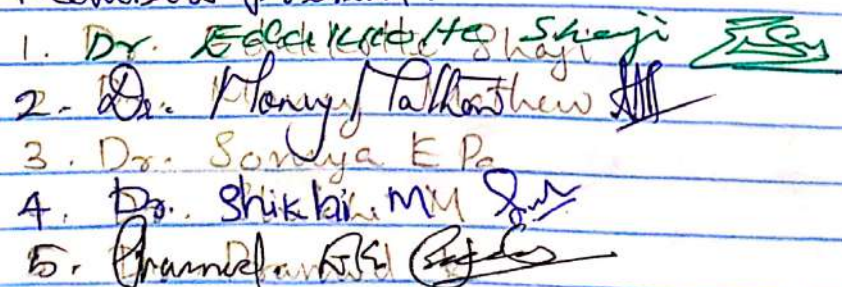 1. Dr. Edakkotte Shaji
2. Dr. Manoj Mathew
3. Dr. Somya E P.
4. Dr. Shikhi. M
5. Pramod